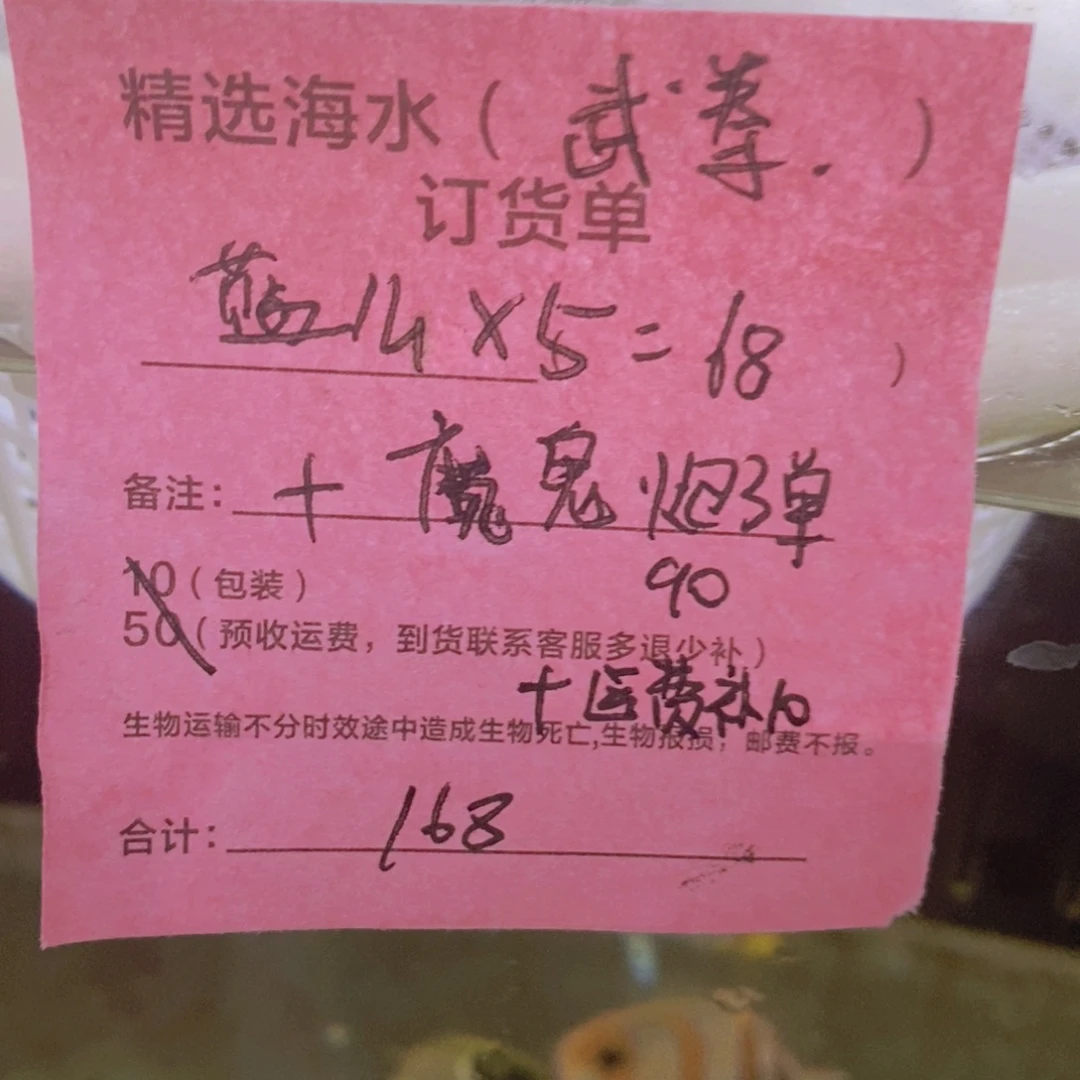 精选海水（武拳.）
订货单
蓝14×5=68
）
备注：+魔鬼炮弹
10（包装）
90
50（预收运费，到货联系客服多退少补）
+运费补10
生物运输不分时效途中造成生物死亡,生物报损，邮费不报。
合计：168